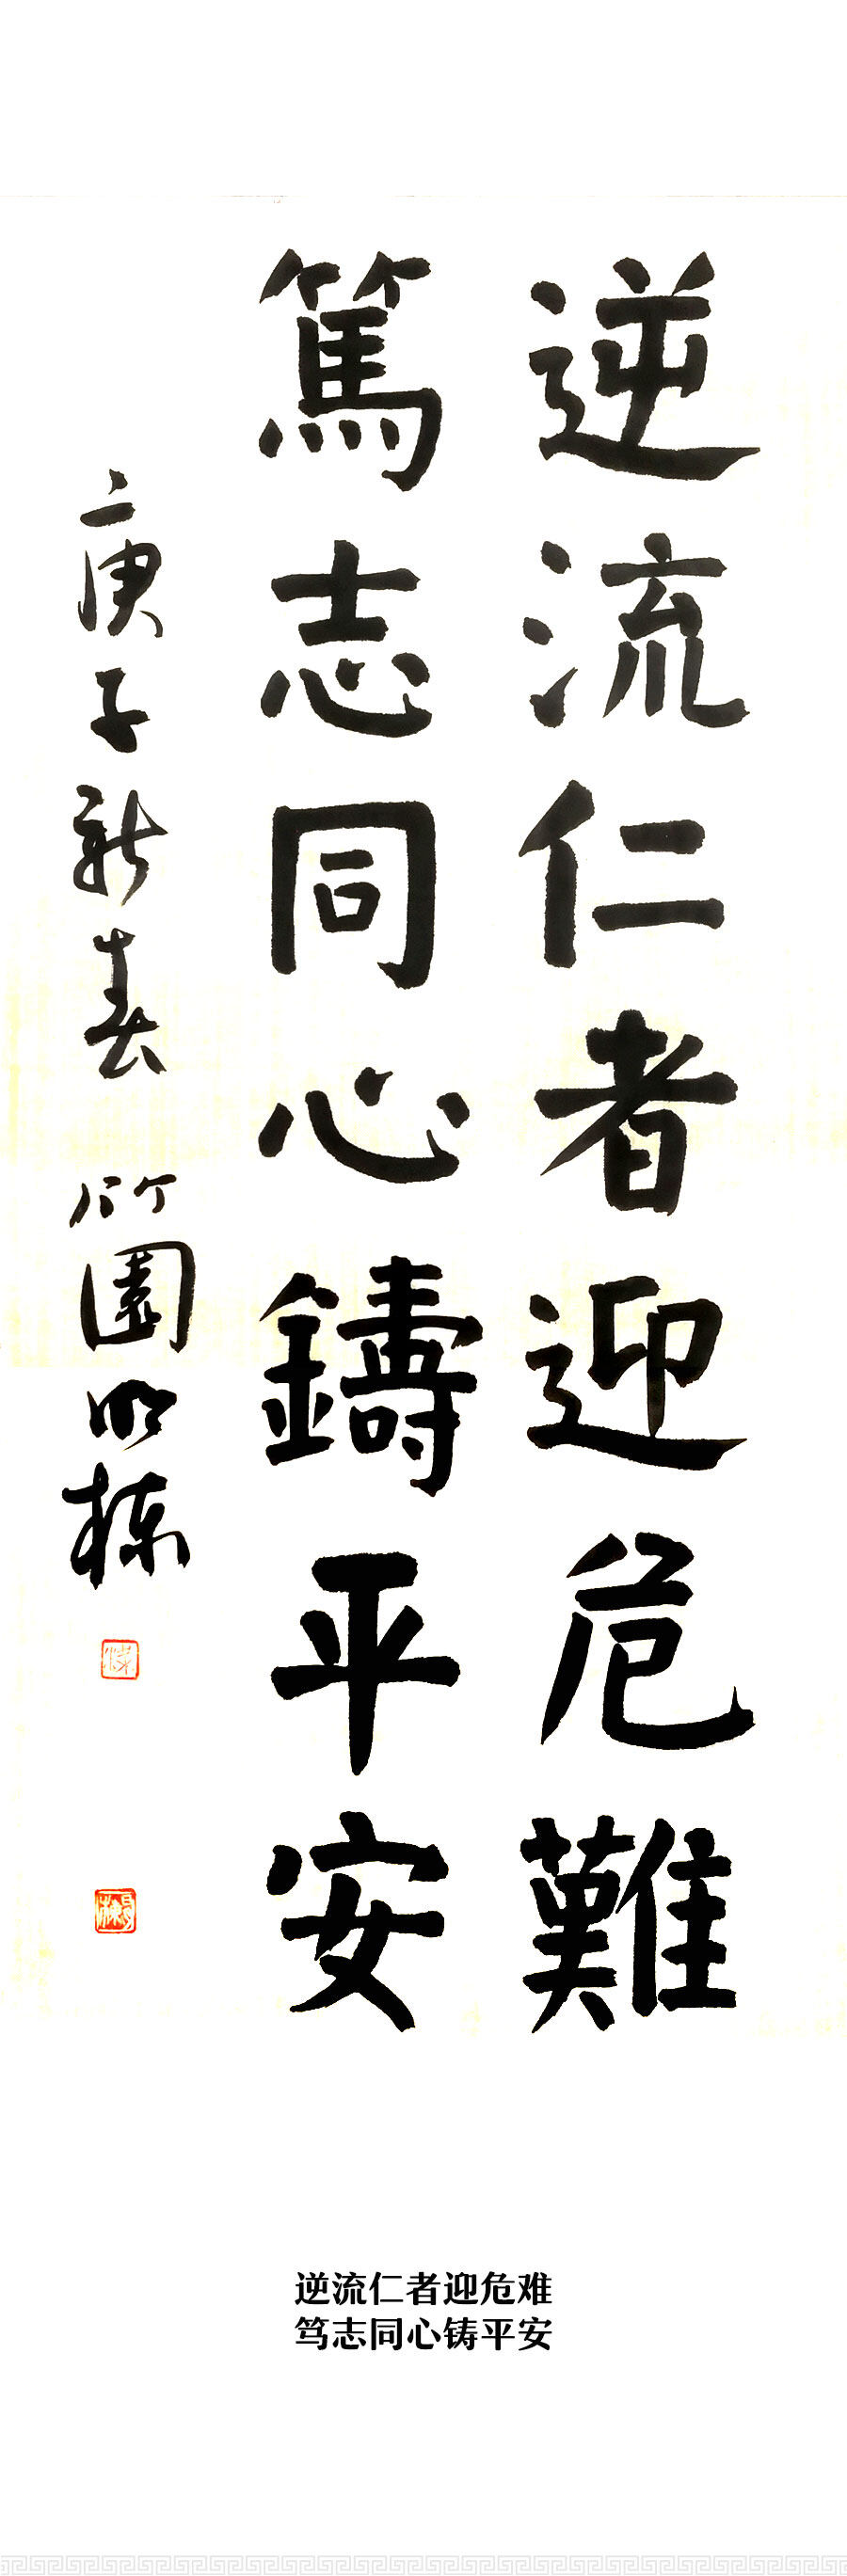 逆流仁者迎危難
篤志同心鑄平安
庚子新春 竹園明栋
逆流仁者迎危难
笃志同心铸平安